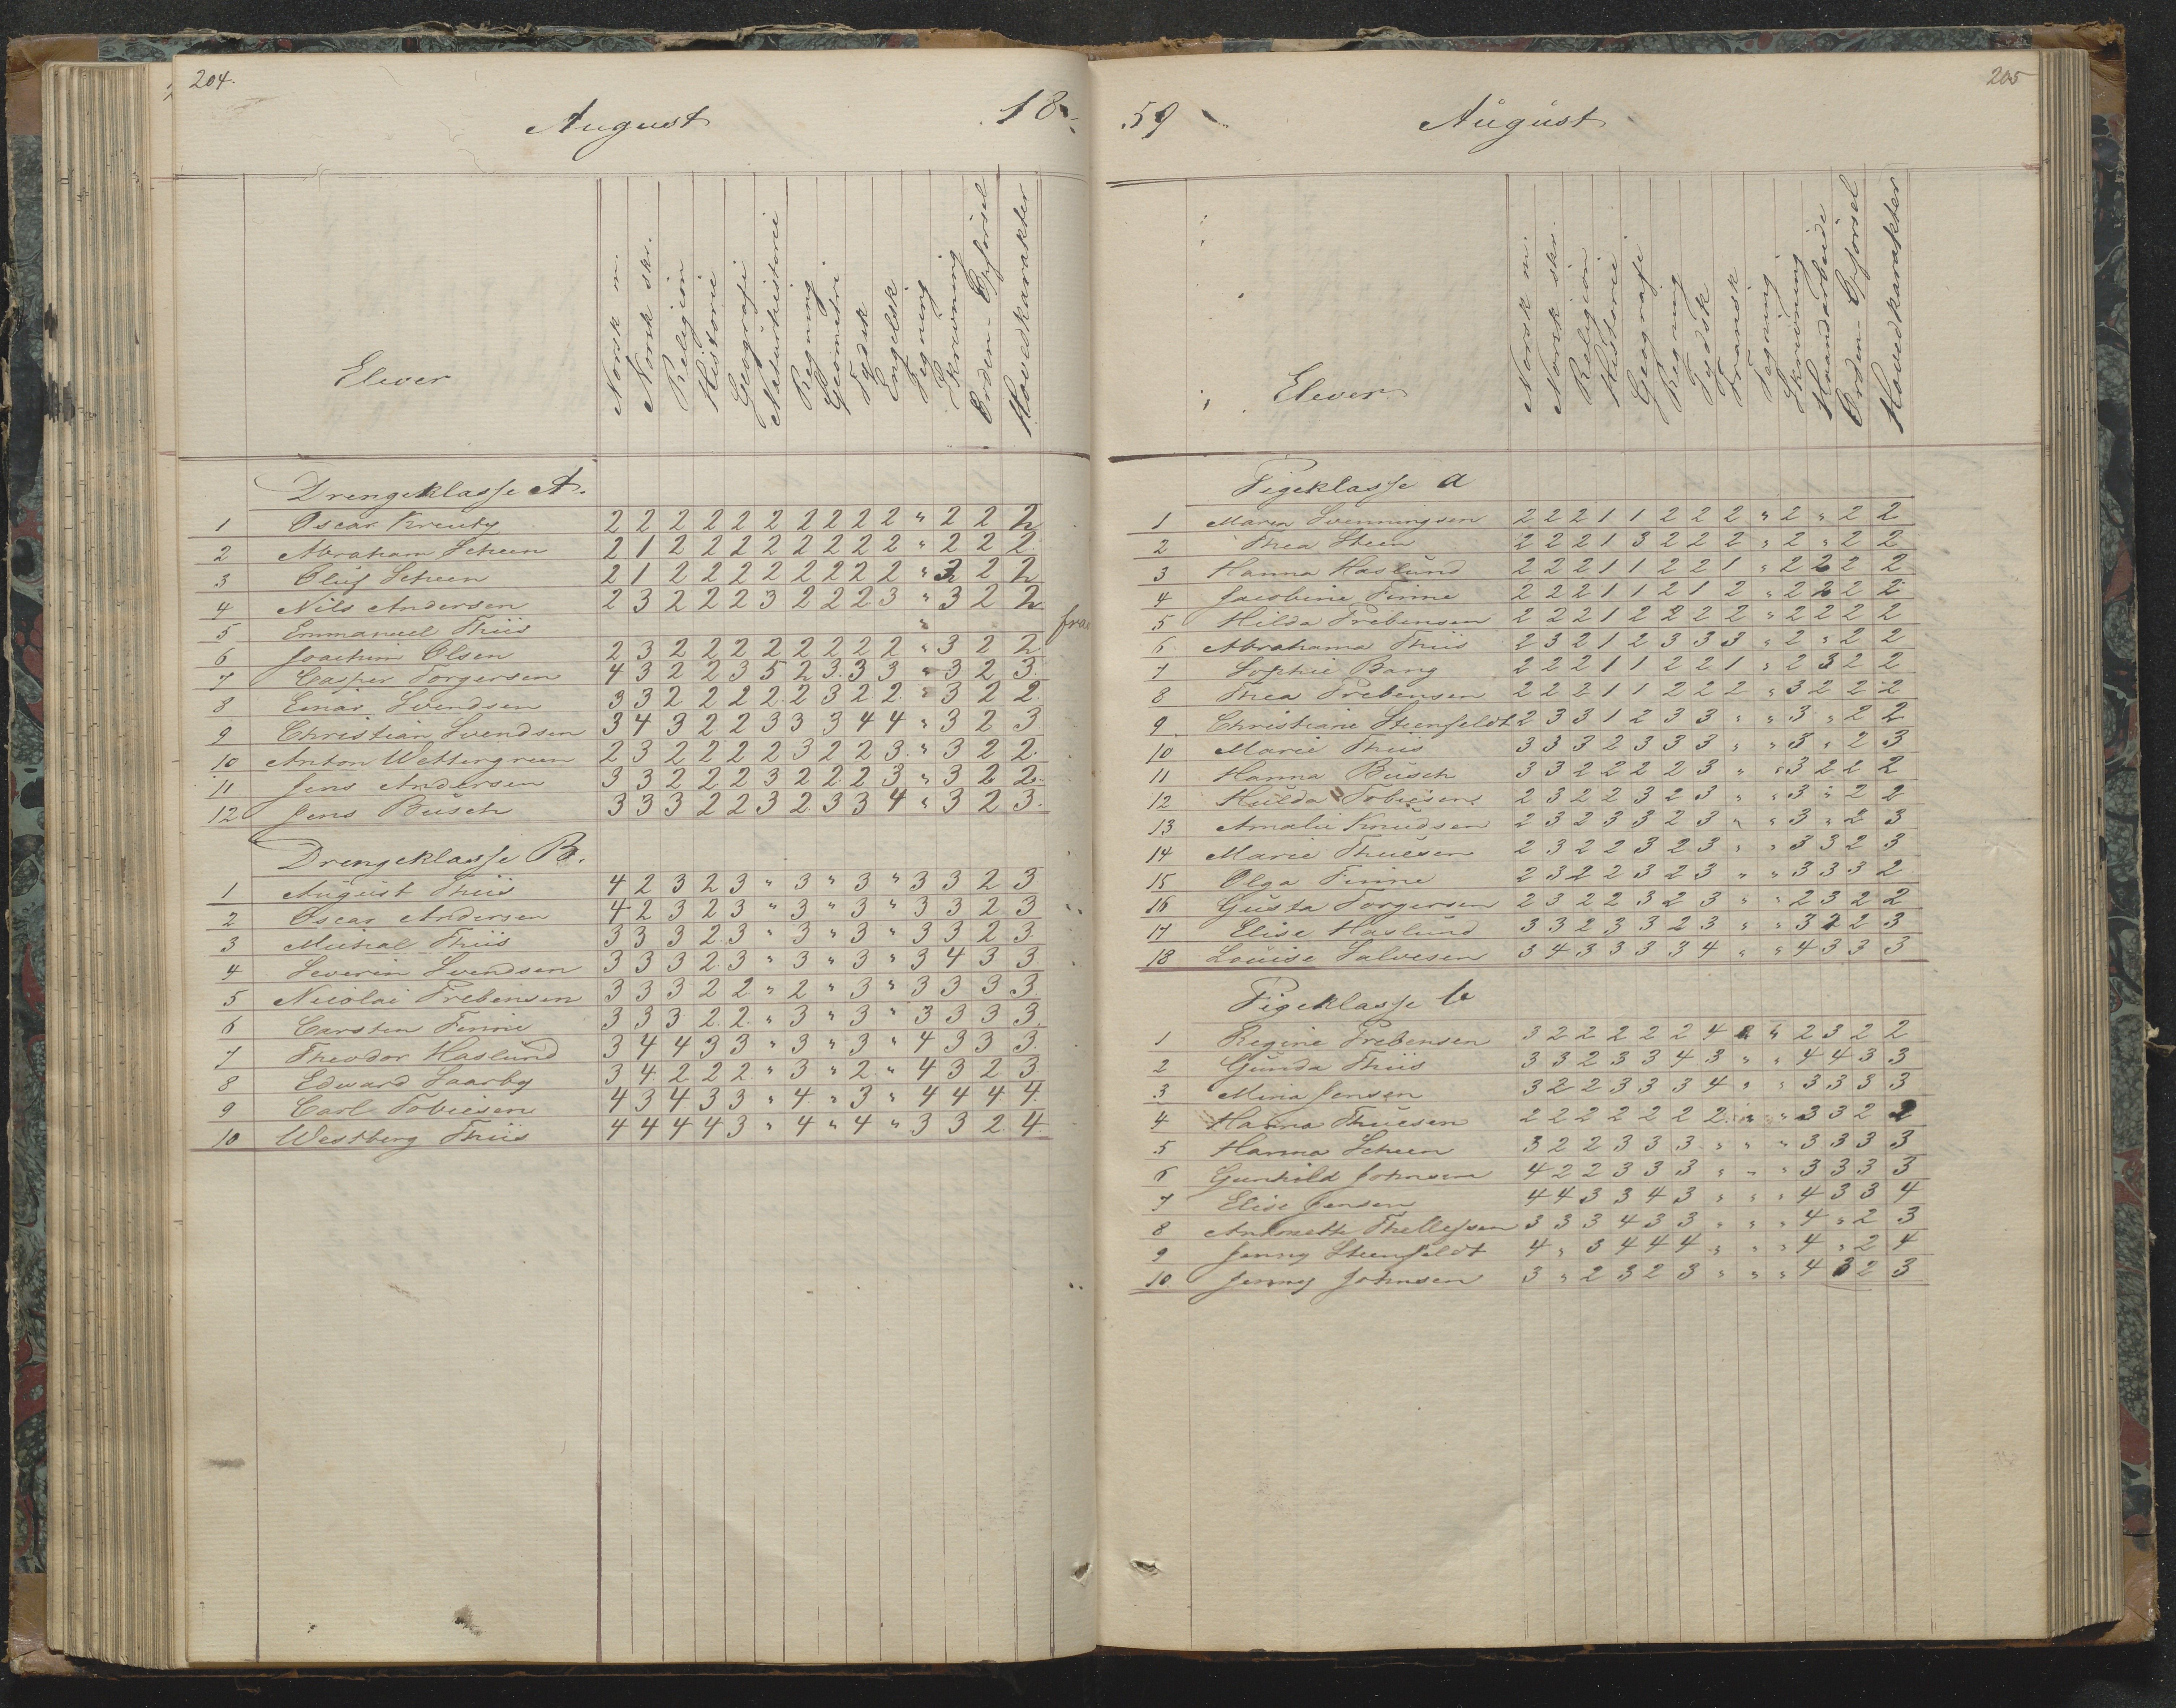 204.
August
18
Elever
Norsk m.
Norsk skr.
Religion
Historie
Geografie
Naturhistorie
Regning
Geometri
Tydsk
Engelsk
Tegning
Skrivning
Orden - Opførsel
Hovedkarakter
Drengeklasse A.
1 Oscar 2 2 2 2 2 2 2 2 2 2 " 2 2 2
2 Abraham Scheen 2 1 2 2 2 2 2 2 2 2 " 2 2 2
3 Oluf Scheen 2 1 2 2 2 2 2 2 2 2 " 3 2 2
4 Nils Andersen 2 3 2 2 2 3 2 2 2 3 " 3 2 2
5 Emmanuel Thiis "
6 Joachim Olsen 2 3 2 2 2 2 2 2 2 2 " 3 2 2
7 Casper Torgersen 4 3 2 2 3 5 2 3 3 3 " 3 2 3
8 Einar Svendsen 3 3 2 2 2 2 2 3 2 2 " 3 2 2
9 Christian Svendsen 3 4 3 2 2 3 3 3 4 4 " 3 2 3
10 Anton Wettergreen 2 3 2 2 2 2 3 2 2 3 " 3 2 2
11 Jens Andersen 3 3 2 2 2 3 2 2 2 3 " 3 2 2
12 Jens Busch 3 3 3 2 2 3 2 3 3 4 " 3 2 3
Drengeklasse B.
1 August Thiis 4 2 3 2 3 " 3 " 3 " 3 3 2 3
2 Oscar Andersen 4 2 3 2 3 " 3 " 3 " 3 3 2 3
3 Michal Thiis 3 3 3 2 3 " 3 " 3 " 3 3 2 3
4 Severin Svendsen 3 3 3 2 3 " 3 " 3 " 3 4 3 3
5 Nicolai Prebensen 3 3 3 2 2 " 2 " 3 " 3 3 3 3
6 Carsten Finne 3 3 3 2 2 " 3 " 3 " 3 3 3 3
7 Theodor Haslund 3 4 4 3 3 " 3 " 3 " 4 3 3 3
8 Edward Saarby 3 4 2 2 2 " 3 " 2 " 4 3 2 3
9 Carl Tobiesen 4 3 4 3 3 " 4 " 3 " 4 4 4 4
10 Westberg Thiis 4 4 4 4 3 " 4 " 4 " 3 3 2 4
205
59
August
Elever
Norsk m.
Norsk skr.
Religion
Historie
Geografie
Regning
Tydsk
Fransk
Tegning
Skrivning
Haandarbeide
Orden - Opførsel
Hovedkarakter
Pigeklasse a
1 Maren Svenningsen 2 2 2 1 1 2 2 2 " 2 " 2 2
2 Thea Steen 2 2 2 1 3 2 2 2 " 2 " 2 2
3 Hanna Haslund 2 2 2 1 1 2 2 1 " 2 2 2 2
4 Jacobine Finne 2 2 2 1 1 2 1 2 " 2 2 2 2
5 Hilda Prebensen 2 2 2 1 2 2 2 2 " 2 2 2 2
6 Abrahama Thiis 2 3 2 1 2 3 3 3 " 2 " 2 2
7 Sophie Bang 2 2 2 1 1 2 2 1 " 2 3 2 2
8 Thea Prebensen 2 2 2 1 1 2 2 2 " 3 2 2 2
9 Christiane Steenfeldt 2 3 3 1 2 3 3 " " 3 " 2 2
10 Marie Thiis 3 3 3 2 3 3 3 " " 3 " 2 3
11 Hanna Busch 3 3 2 2 2 2 3 " " 3 2 2 2
12 Hulda Tobiesen 2 3 2 2 3 2 3 " " 3 " 2 2
13 Amalie Knudsen 2 3 2 3 3 2 3 " " 3 " 2 3
14 Marie Thuesen 2 3 2 2 3 2 3 " " 3 3 2 3
15 Olga Finne 2 3 2 2 3 2 3 " " 3 3 3 2
16 Gusta Torgersen 2 3 2 2 3 2 3 " " 2 3 2 2
17 Elise Haslund 3 3 2 3 3 2 3 " " 3 2 2 3
18 Louise Salvesen 3 4 3 3 3 3 4 " " 4 3 3 3
Pigeklasse b
1 Regine Prebensen 3 2 2 2 2 2 4 " " 2 3 2 2
2 Gunda Thiis 3 3 2 3 3 4 3 " " 4 4 3 3
3 Mina Jensen 3 2 2 3 3 3 4 " " 3 3 3 3
4 Hanna Thuesen 2 2 2 2 2 2 2 " " 3 3 2 2
5 Hanna Scheen 3 2 2 3 3 3 " " " 3 3 3 3
6 Gunhild Johnsen 4 2 2 3 3 3 " " " 3 3 3 3
7 Elise Jensen 4 4 3 3 4 3 " " " 4 3 3 4
8 Antonette Thellefsen 3 3 3 4 3 3 " " " 4 " 2 3
9 Jenny Steenfeldt 4 " 3 4 4 4 " " " 4 " 2 4
10 Jenny Johnsen 3 " 2 3 2 3 " " " 4 3 2 3